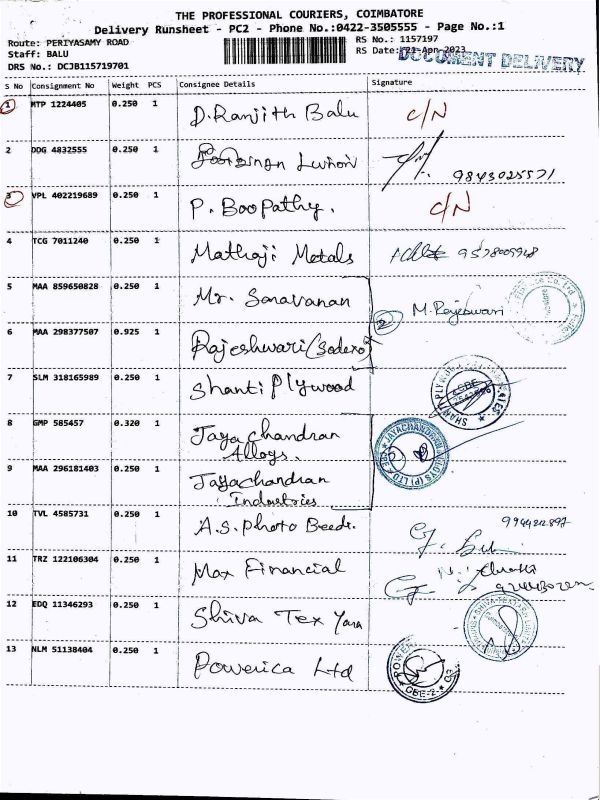 THE PROFESSIONAL COURIERS, COIMBATORE
Delivery Runsheet - PC2 - Phone No.:0422-3505555 - Page No.:1
Route: PERIYASAMY ROAD RS No.: 1157197
Staff: BALU RS Date: 21-Apr-2023
DOCUMENT DELIVERY
DRS No.: DCJB115719701
S No Consignment No Weight PCS Consignee Details Signature
1 MTP 1224405 0.250 1 D.Ranjith Balu C/N
2 DDG 4832555 0.250 1 9843025571
3 VPL 402219689 0.250 1 P. Boopathy. C/N
4 TCG 7011240 0.250 1 Mathaji Metals
5 MAA 859650828 0.250 1 Mr. Saravanan
2 M. Rajeshwari
6 MAA 298377507 0.925 1 Rajeshwari (Sodexo)
7 SLM 318165989 0.250 1 Shanti Plywood
8 GMP 585457 0.320 1 Jayachandran
Alloys.
9 MAA 296181403 0.250 1 Jayachandran
Industries
10 TVL 4585731 0.250 1 A.S. Photo
11 TRZ 122106304 0.250 1 Max Financial
12 EDQ 11346293 0.250 1 Shiva Tex Yarn
13 NLM 51138404 0.250 1 Powerica Ltd